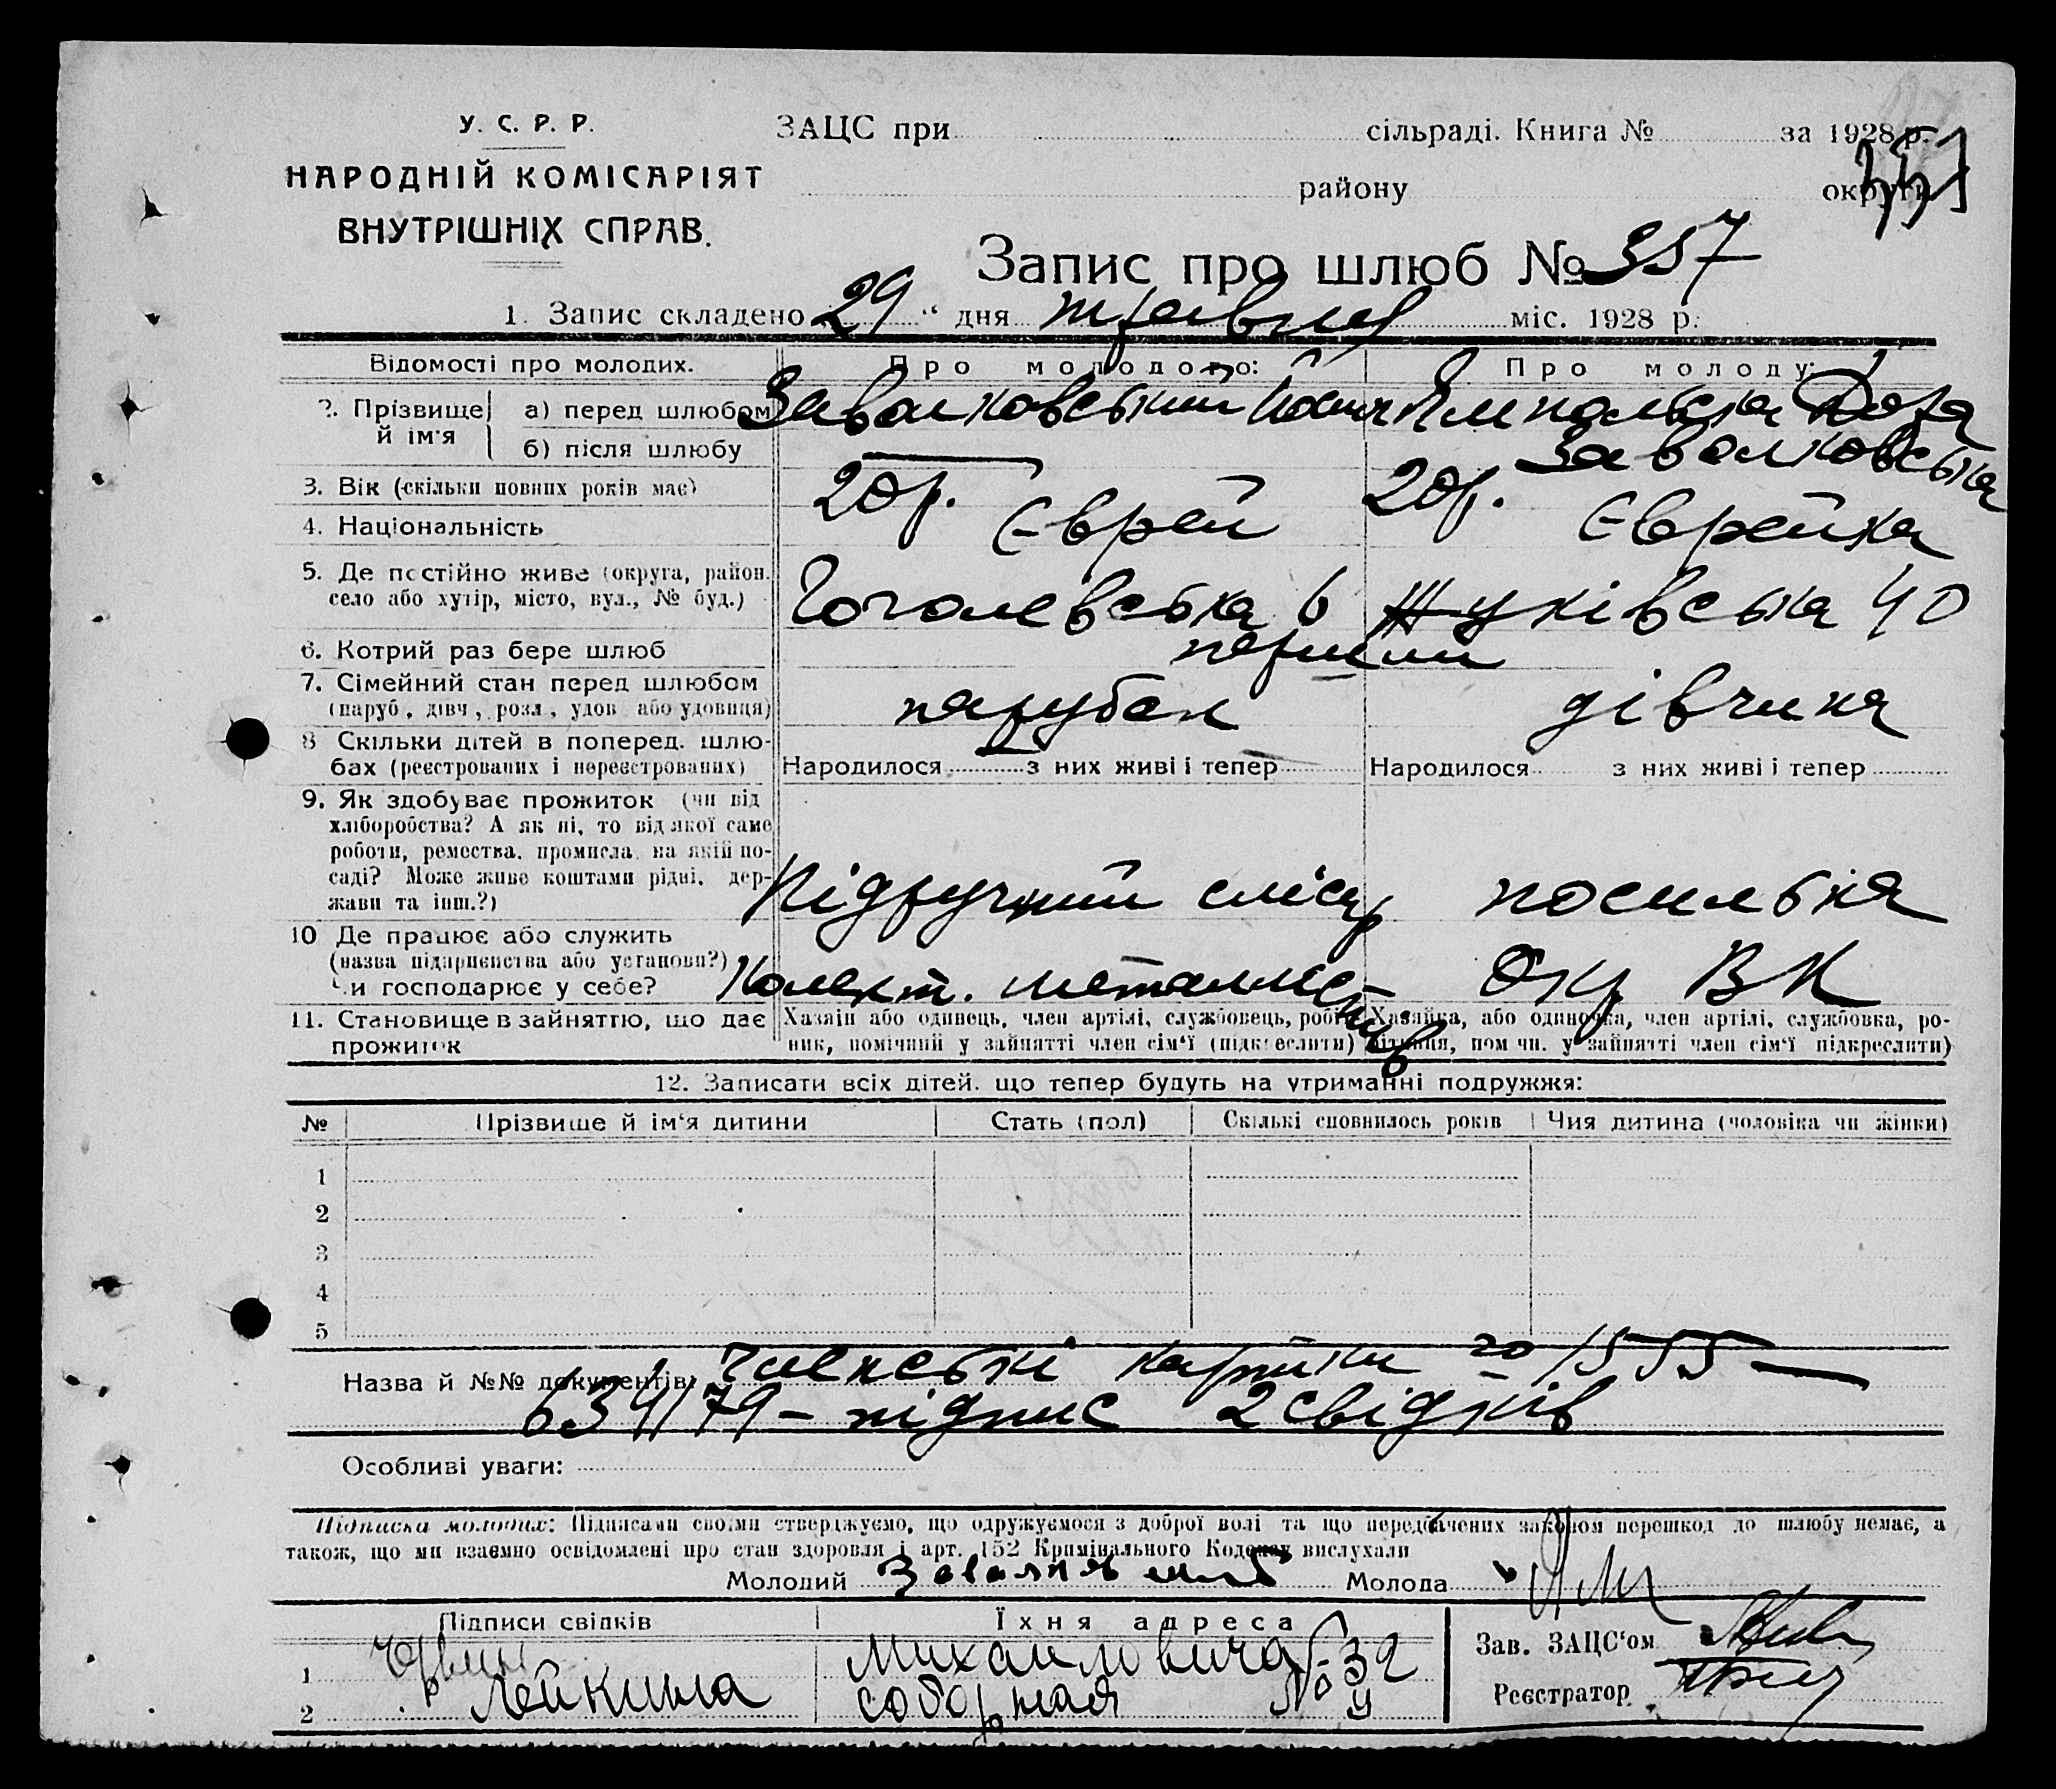 У. С. Р. Р.
НАРОДНІЙ КОМІСАРІЯТ
ВНУТРІШНІХ СПРАВ.
ЗАЦС при сільраді. Книга № за 1928 р.
району округи
357
Запис про шлюб № 357
1. Запис складено 29 “ дня травня міс. 1928 р.
Відомості про молодих. Про молодого: Про молоду:
2. Прізвище й ім'я
а) перед шлюбом Заволковський Ямпольська Дора
б) після шлюбу — Заволковська
3. Вік (скільки повних років має) 20 р. 20 р.
4. Національність Єврей Єврейка
5. Де постійно живе (округа, район. Гоголевська 6 Жуківська 40
село або хутір, місто, вул., № буд.)
6. Котрий раз бере шлюб перший
7. Сімейний стан перед шлюбом парубок дівчина
(паруб., дівч., розл., удов. або удовиця)
8 Скільки дітей в поперед. шлю-
бах (реєстрованих і нереєстрованих) Народилося — з них живі і тепер — Народилося з них живі і тепер
9. Як здобуває прожиток (чи від
хліборобства? А як ні, то від якої саме
роботи, ремества, промисла, на якій по-
саді? Може живе коштами рідні, дер-
жави та інш.?) Підручний слісар посильна
10 Де працює або служить
(назва підприємства або установи?)
Чи господарює у себе? Колект. металлістів Окр ВК
11. Становище в зайняттю, що дає
прожиток
Хазяїн або одинець, член артілі, службовець, робіт-
ник, помічний у зайнятті член сім'ї (підкреслити)
Хазяйка, або одиночка, член артілі, службовка, ро-
бітниця, пом чн. у зайнятті член сім'ї підкреслити)
12. Записати всіх дітей, що тепер будуть на утриманні подружжя:
№ Прізвище й ім'я дитини Стать (пол) Скількі сповнилось років Чия дитина (чоловіка чи жінки)
1
2
3
4
5
Назва й №№ документів: Членські картки 1555 —
634179 — підпис 2 свідків
Особливі уваги:
Підписка молодих: Підписами своїми стверджуємо, що одружуємося з доброї волі та що передбачених законом перешкод до шлюбу немає, а
також, що ми взаємно освідомлені про стан здоровля і арт. 152 Кримінального Кодексу вислухали
Молодий Молода
Підписи свідків Їхня адреса
1 Михайловича 32
2 Лейкина Соборная № 4
Зав. ЗАЦС'ом
Реєстратор